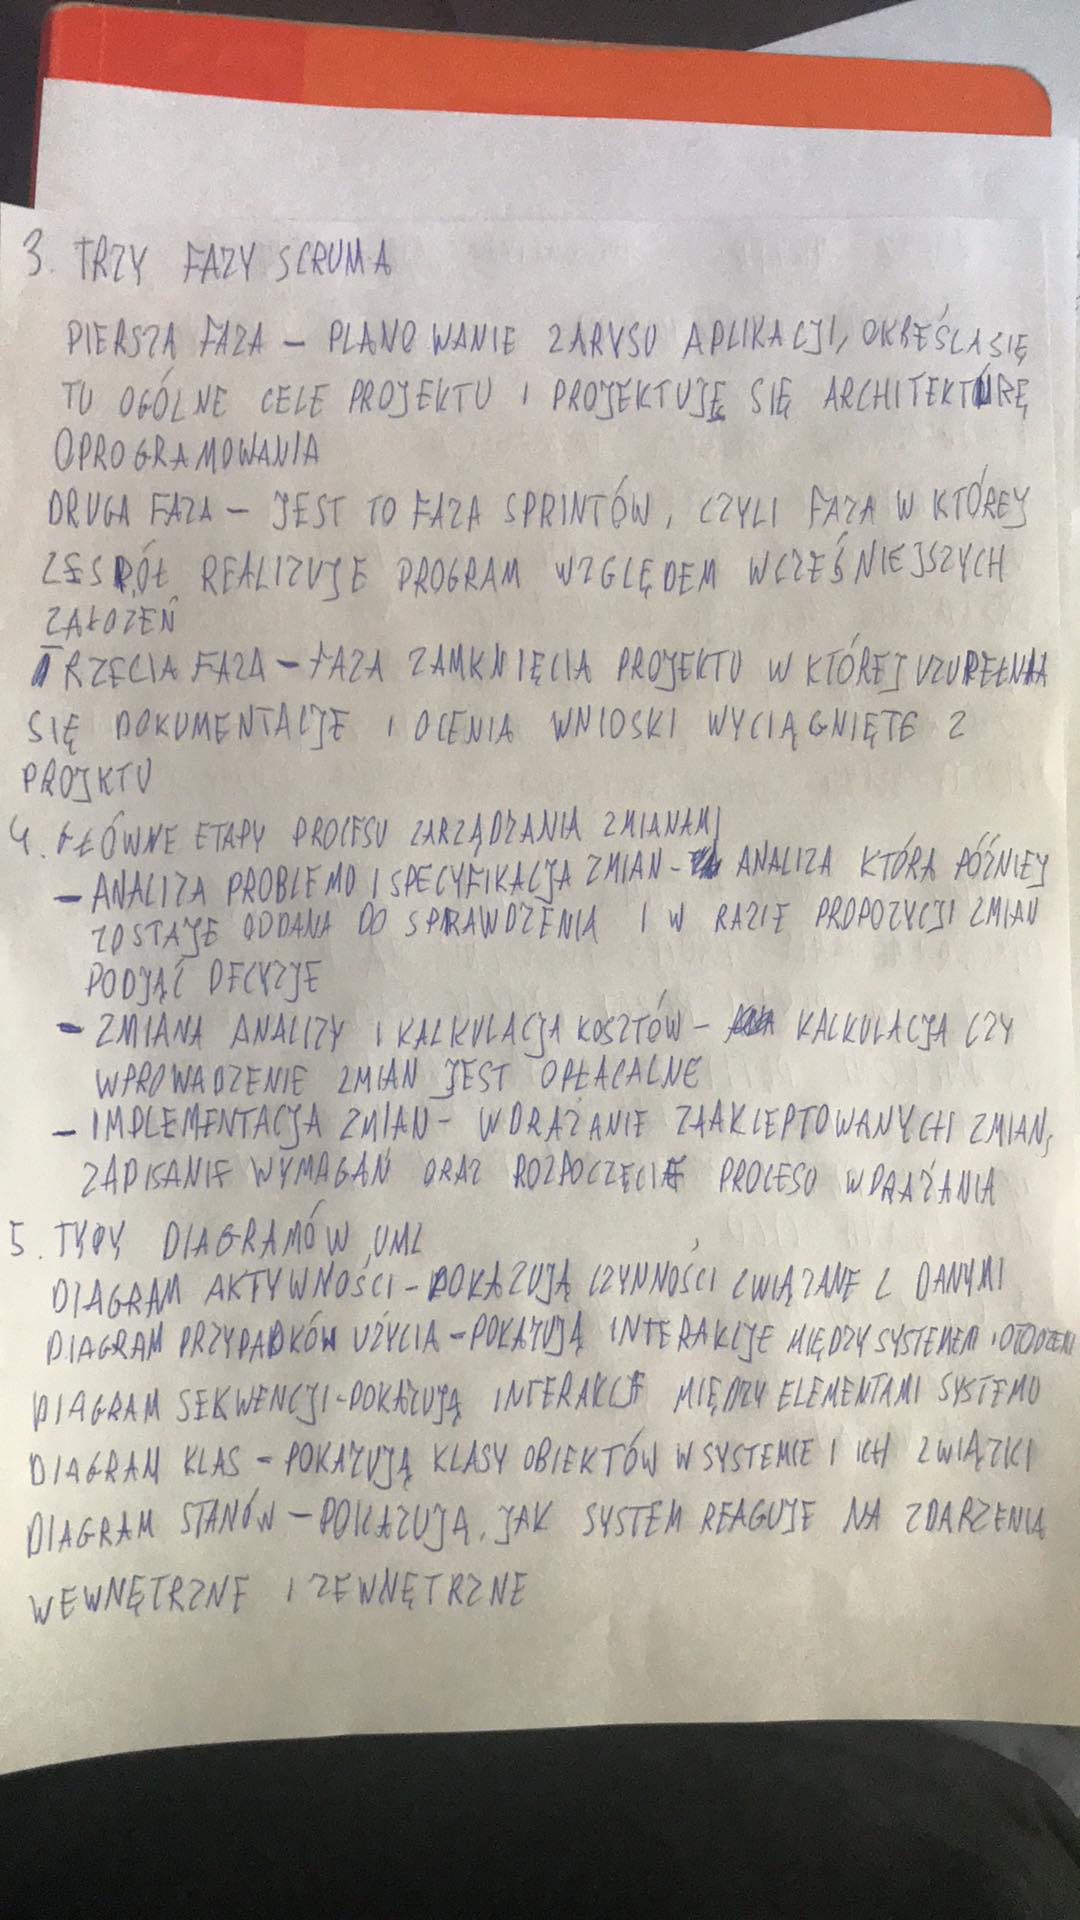 3. TRZY FAZY SCRUMA
PIERSZA FAZA – PLANOWANIE ZARYSU APLIKACJI, OKREŚLA SIĘ
TU OGÓLNE CELE PROJEKTU I PROJEKTUJĘ SIĘ ARCHITEKTURĘ
OPROGRAMOWANIA
DRUGA FAZA – JEST TO FAZA SPRINTÓW, CZYLI FAZA W KTÓREJ
ZESPÓŁ REALIZUJE PROGRAM WZGLĘDEM WCZEŚNIEJSZYCH
ZAŁOZEŃ
TRZECIA FAZA – FAZA ZAMKNIĘCIA PROJEKTU W KTÓREJ UZUPEŁNIA
SIĘ DOKUMENTACJE I OCENIA WNIOSKI WYCIĄGNIĘTE Z
PROJKTU
4. GŁÓWNE ETAPY PROCESU ZARZĄDZANIA ZMIANAMI
– ANALIZA PROBLEMU I SPECYFIKACJA ZMIAN - ANALIZA KTÓRA PÓŹNIEJ
ZOSTAJE ODDANA DO SPRAWDZENIA I W RAZIE PROPOZYCJI ZMIAN
PODJĄĆ DECYZJE
– ZMIANA ANALIZY I KALKULACJA KOSZTÓW – KALKULACJA CZY
WPROWADZENIE ZMIAN JEST OPŁACALNE
– IMPLEMENTACJA ZMIAN – WDRAŻANIE ZAAKCEPTOWANYCH ZMIAN,
ZAPISANIE WYMAGAŃ ORAZ ROZPOCZĘCIE PROCESU WDRAŻANIA
5. TYPY DIAGRAMÓW UML
DIAGRAM AKTYWNOŚCI – POKAZUJĄ CZYNNOŚCI ZWIĄZANE Z DANYMI
DIAGRAM PRZYPADKÓW UŻYCIA – POKAZUJĄ INTERAKCJE MIĘDZY SYSTEMEM I
DIAGRAM SEKWENCJI – POKAZUJĄ INTERAKCJE MIĘDZY ELEMENTAMI SYSTEMU
DIAGRAM KLAS – POKAZUJĄ KLASY OBIEKTÓW W SYSTEMIE I ICH ZWIĄZKI
DIAGRAM STANÓW – POKAZUJĄ, JAK SYSTEM REAGUJE NA ZDARZENIA
WEWNĘTRZNE I ZEWNĘTRZNE